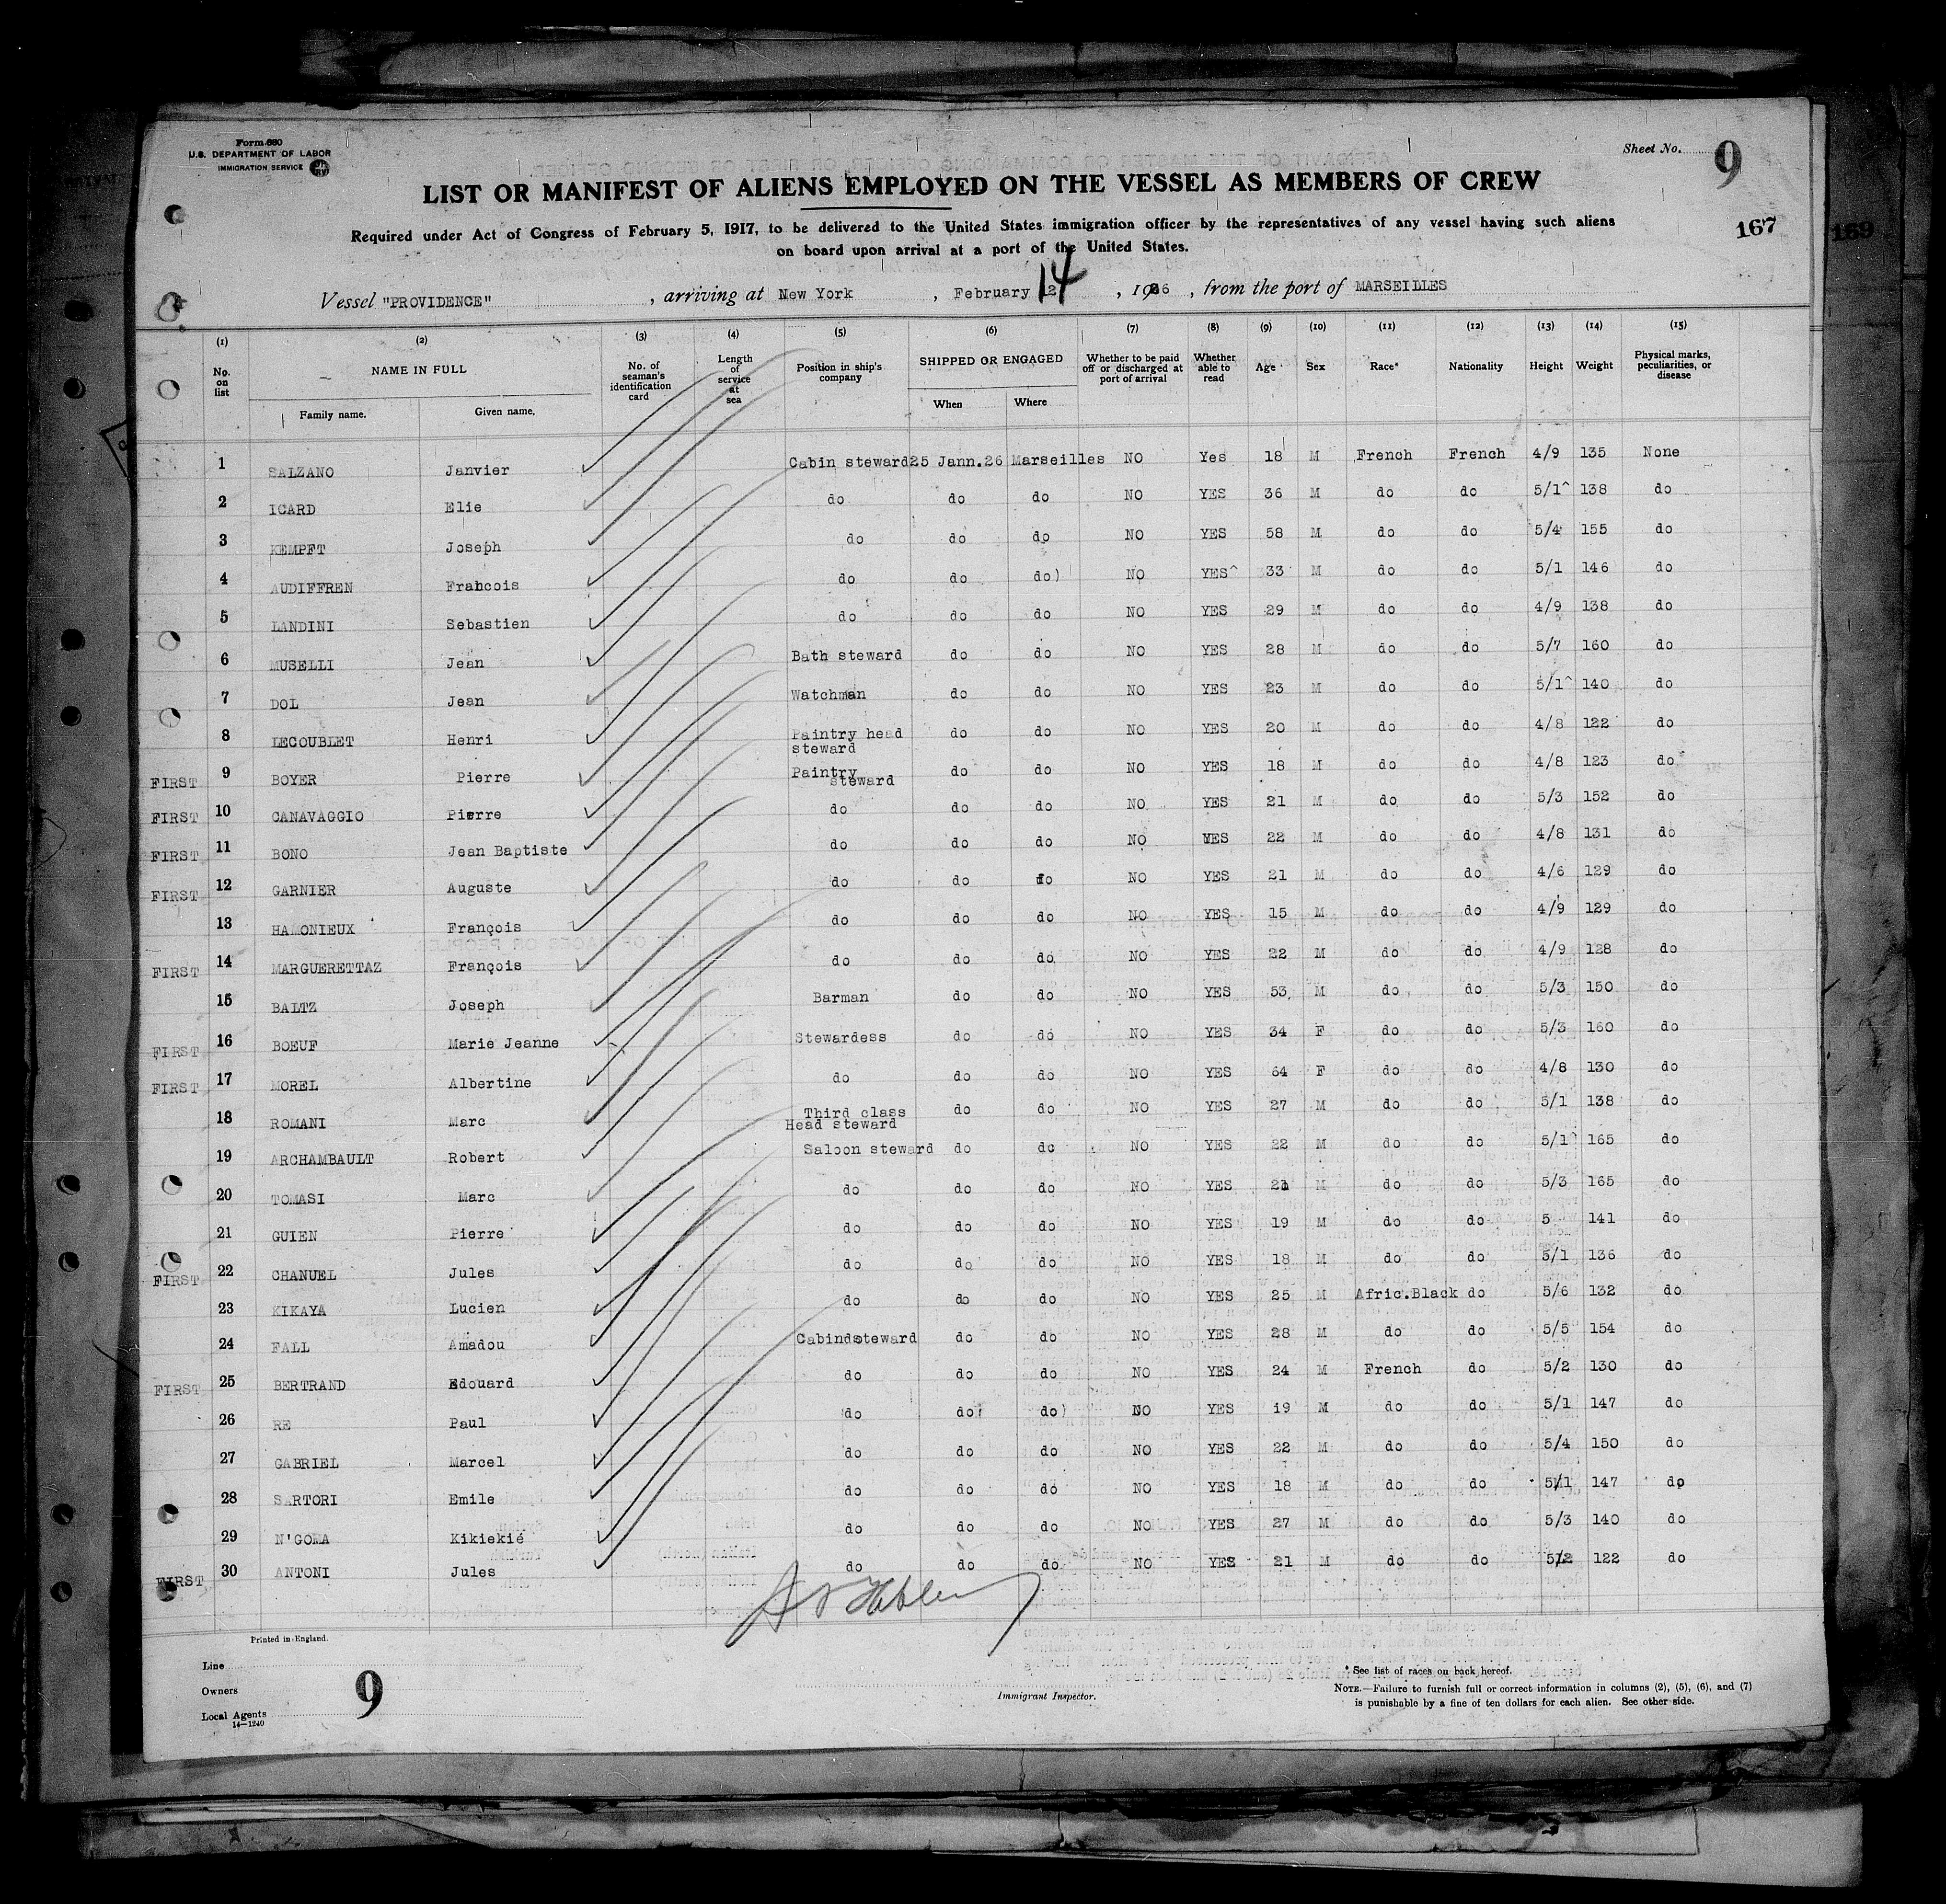 Form 680
U.S. DEPARTMENT OF LABOR
IMMIGRATION SERVICE
Sheet No. 9
LIST OR MANIFEST OF ALIENS EMPLOYED ON THE VESSEL AS MEMBERS OF CREW
Required under Act of Congress of February 5, 1917, to be delivered to the United States immigration officer by the representatives of any vessel having such aliens
on board upon arrival at a port of the United States.
167
169
Vessel "PROVIDENCE", arriving at New York, February 14, 1926, from the port of MARSEILLES
(1) (2) (3) (4) (5) (6) (7) (8) (9) (10) (11) (12) (13) (14) (15)
No. on list NAME IN FULL No. of seaman's identification card Length of service at sea Position in ship's company SHIPPED OR ENGAGED Whether to be paid off or discharged at port of arrival Whether able to read Age Sex Race* Nationality Height Weight Physical marks, peculiarities, or disease
Family name. Given name. When Where
1 SALZANO Janvier Cabin steward 25 Jann.26 Marseilles NO Yes 18 M French French 4/9 135 None
2 ICARD Elie do do do NO YES 36 M do do 5/1^ 138 do
3 KEMPFT Joseph do do do NO YES 58 M do do 5/4 155 do
4 AUDIFFREN Frahcois do do do) NO YES^ 33 M do do 5/1 146 do
5 LANDINI Sebastien do do do NO YES 29 M do do 4/9 138 do
6 MUSELLI Jean Bath steward do do NO YES 28 M do do 5/7 160 do
7 DOL Jean Watchman do do NO YES 23 M do do 5/1^ 140 do
8 LECOUBLET Henri Paintry head steward do do NO YES 20 M do do 4/8 122 do
FIRST 9 BOYER Pierre Paintry steward do do NO YES 18 M do do 4/8 123 do
FIRST 10 CANAVAGGIO Pierre do do do NO YES 21 M do do 5/3 152 do
FIRST 11 BONO Jean Baptiste do do do NO YES 22 M do do 4/8 131 do
FIRST 12 GARNIER Auguste do do do NO YES 21 M do do 4/6 129 do
13 HAMONIEUX François do do do NO YES 15 M do do 4/9 129 do
FIRST 14 MARGUERETTAZ François do do do NO YES 22 M do do 4/9 128 do
15 BALTZ Joseph Barman do do NO YES 53 M do do 5/3 150 do
FIRST 16 BOEUF Marie Jeanne Stewardess do do NO YES 34 F do do 5/3 160 do
FIRST 17 MOREL Albertine do do do NO YES 64 F do do 4/8 130 do
18 ROMANI Marc Third class Head steward do do NO YES 27 M do do 5/1 138 do
19 ARCHAMBAULT Robert Saloon steward do do NO YES 22 M do do 5/1^ 165 do
20 TOMASI Marc do do do NO YES 21 M do do 5/3 165 do
21 GUIEN Pierre do do do NO YES 19 M do do 5 141 do
FIRST 22 CHANUEL Jules do do do NO YES 18 M do do 5/1 136 do
23 KIKAYA Lucien do do do NO YES 25 M Afric.Black do 5/6 132 do
24 FALL Amadou Cabin steward do do NO YES 28 M do do 5/5 154 do
FIRST 25 BERTRAND Edouard do do do NO YES 24 M French do 5/2 130 do
26 RE Paul do do do) NO YES 19 M do do 5/1 147 do
27 GABRIEL Marcel do do do NO YES 22 M do do 5/4 150 do
28 SARTORI Emile do do do NO YES 18 M do do 5/1 147 do
29 N'GOMA Kikiekié do do do NO YES 27 M do do 5/3 140 do
FIRST 30 ANTONI Jules do do do NO YES 21 M do do 5/2 122 do
Printed in England.
Line
Owners
Local Agents
14—1240
9
Immigrant Inspector.
* See list of races on back hereof.
NOTE.—Failure to furnish full or correct information in columns (2), (5), (6), and (7)
is punishable by a fine of ten dollars for each alien. See other side.